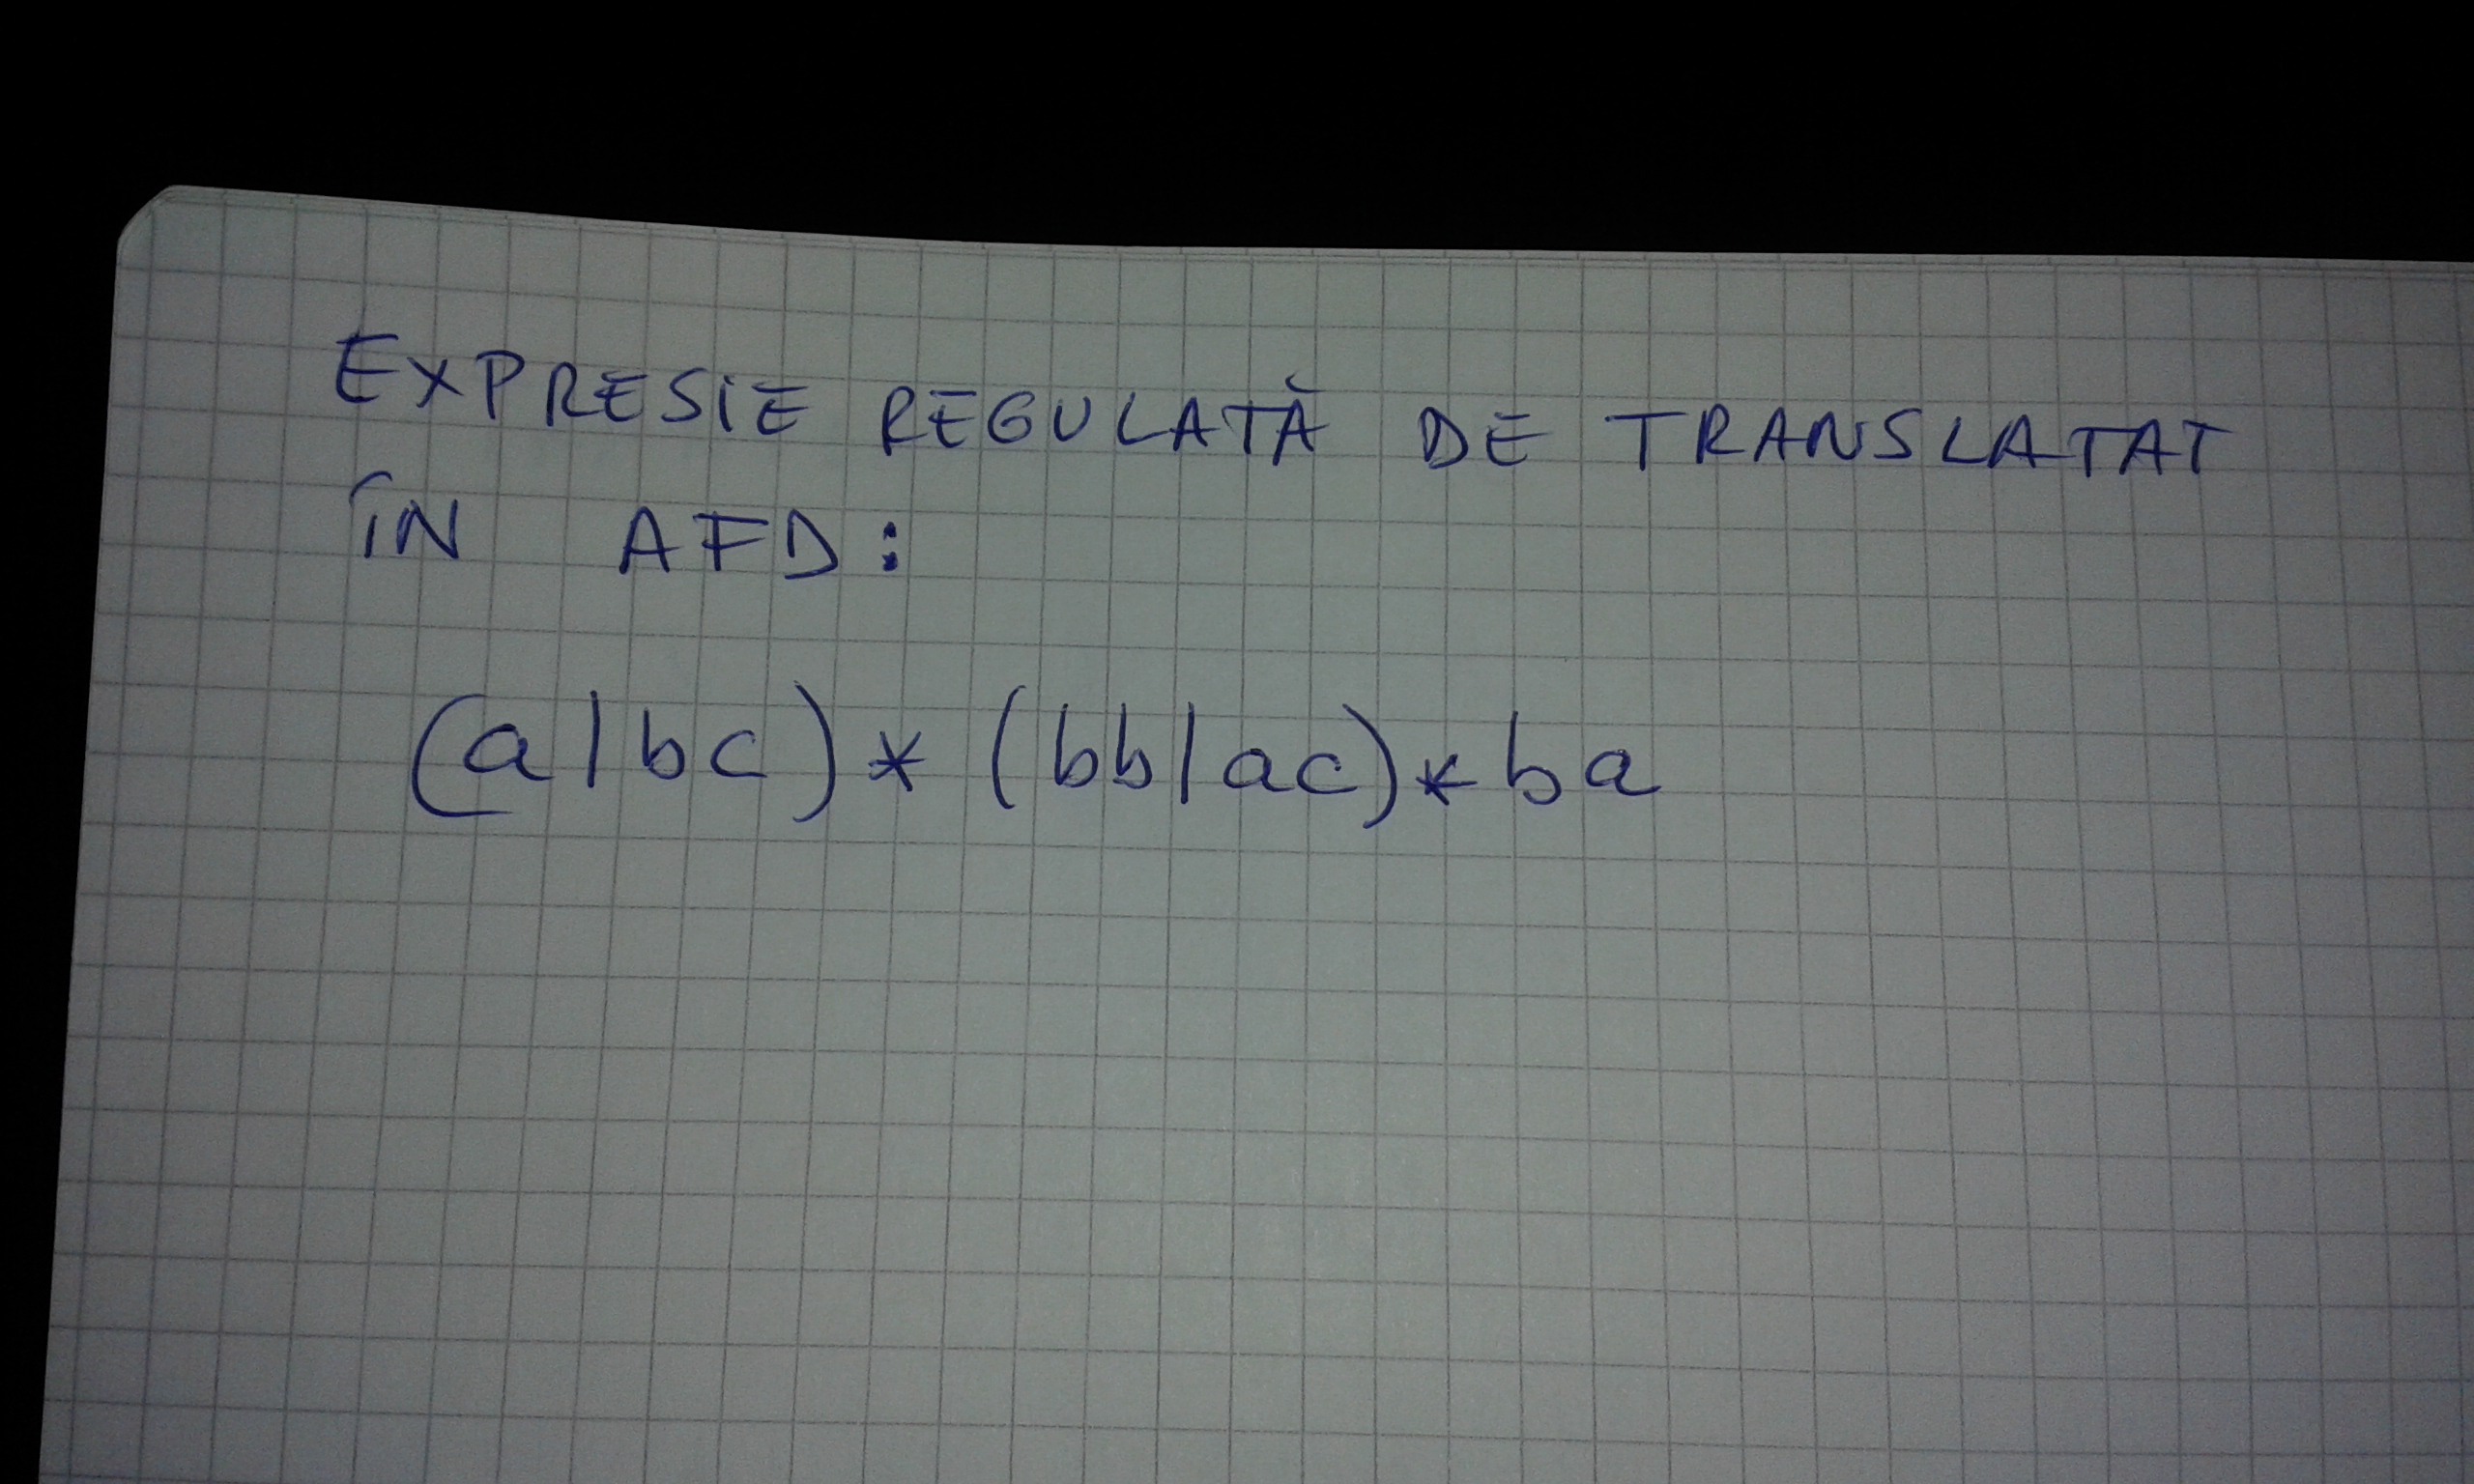 EXPRESIE REGULATĂ DE TRANSLATAT
ÎN AFD:
(a|bc)*(bb|ac)*ba